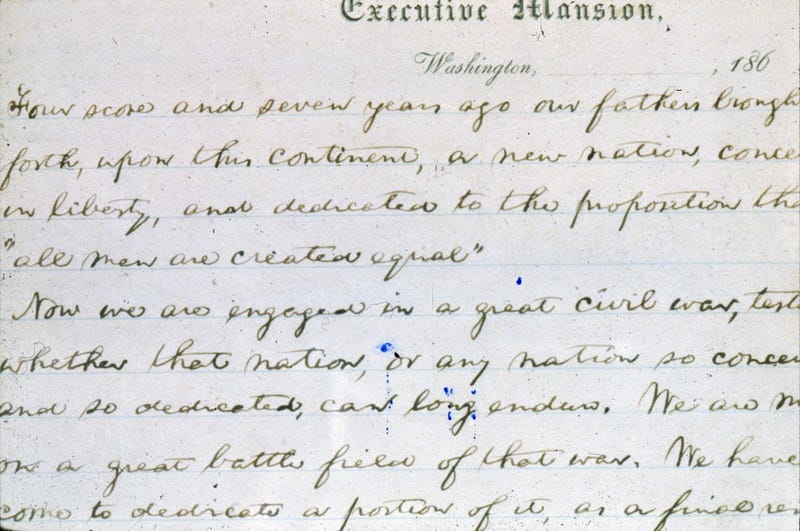 Executive Mansion,
Washington, , 186
Four score and seven years ago our fathers brough
forth, upon this continent, a new nation, conce
in liberty, and dedicated to the proposition tha
"all men are created equal"
Now we are engaged in a great civil war, test
whether that nation, or any nation so concei
and so dedicated, can long endure. We are m
on a great battle field of that war. We have
come to dedicate a portion of it, as a final res